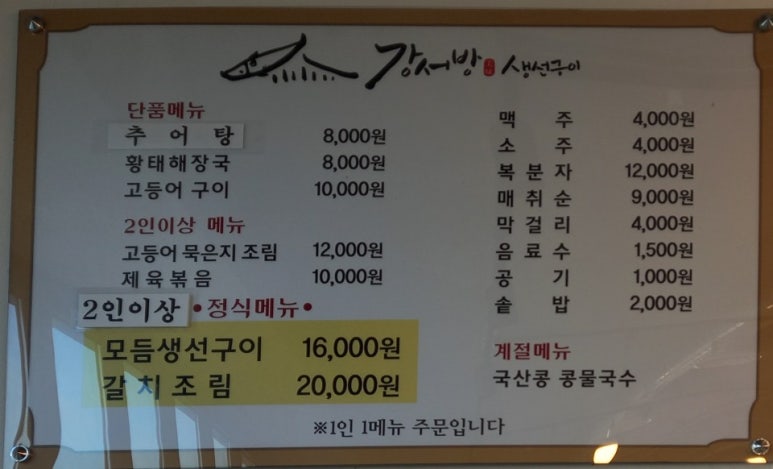 강서방 생선구이
단품메뉴
추어탕 8,000원
황태해장국 8,000원
고등어 구이 10,000원
2인이상 메뉴
고등어 묵은지 조림 12,000원
제육볶음 10,000원
2인이상 •정식메뉴•
모듬생선구이 16,000원
갈치조림 20,000원
맥주 4,000원
소주 4,000원
복분자 12,000원
매취순 9,000원
막걸리 4,000원
음료수 1,500원
공기 1,000원
솥밥 2,000원
계절메뉴
국산콩 콩물국수
※1인 1메뉴 주문입니다